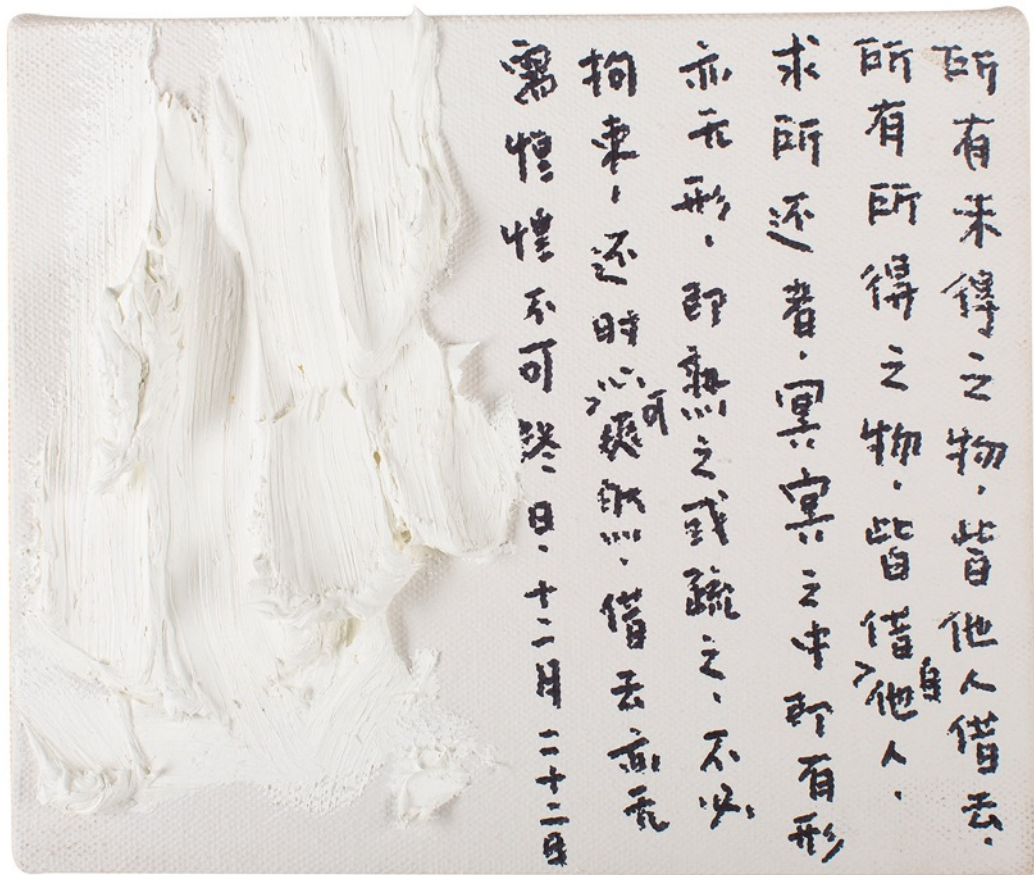 所有未得之物，皆他人借去，
所有所得之物，皆借自他人．
求所还者，冥冥之中即有形
亦无形，即熟之或疏之，不必
拘束，还时心可爽然，借去亦无
需惶惶不可终日．十二月二十二日